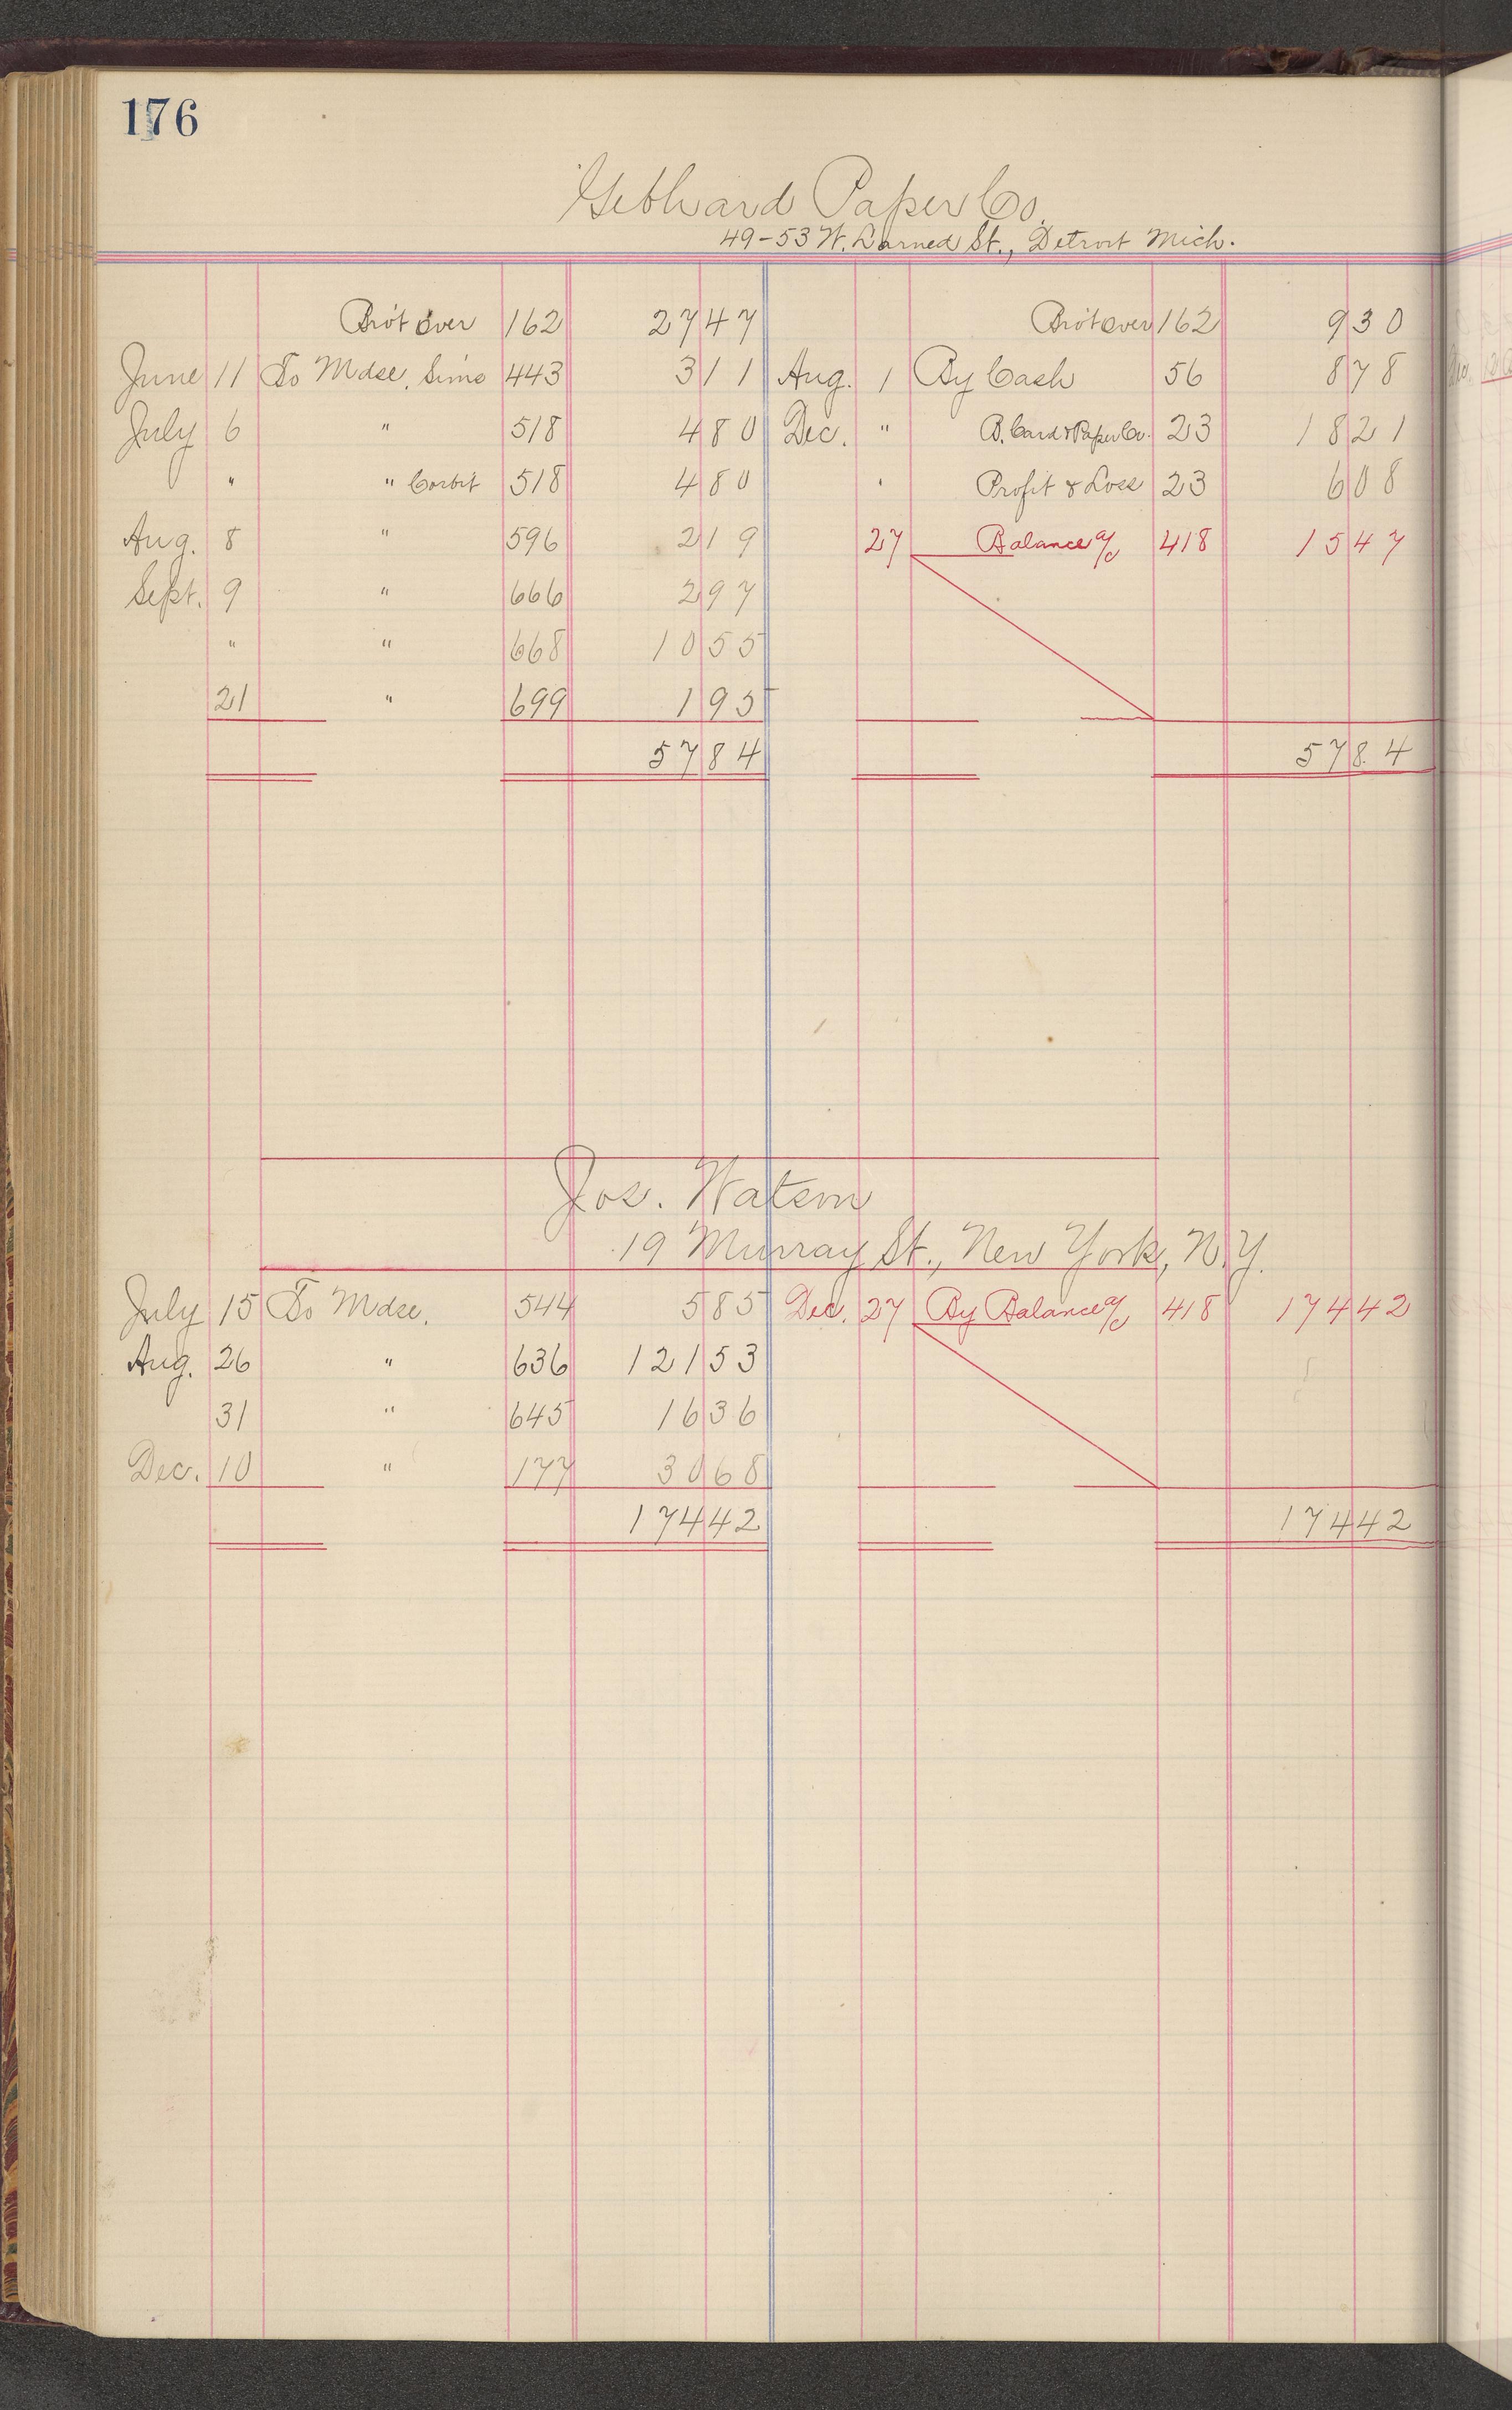 176
Gebhard Paper Co.
49-53 W. Larned St., Detroit Mich.
Bro't over 162 2747 Bro't over 162 930
June 11 To Mdse. Sims 443 311 Aug. 1 By Cash 56 878
July 6 " 518 480 Dec. " B. Card & Paper Co. 23 1821
" " Corbit 518 480 " Profit & Loss 23 608
Aug. 8 " 596 219 27 Balance a/c 418 1547
Sept. 9 " 666 297
" " 668 1055
21 " 699 195
5784 5784
Jos. Watson
19 Murray St., New York, N.Y.
July 15 To Mdse. 544 585 Dec. 27 By Balance a/c 418 17442
Aug. 26 " 636 12153
31 " 645 1636
Dec. 10 " 177 3068
17442 17442